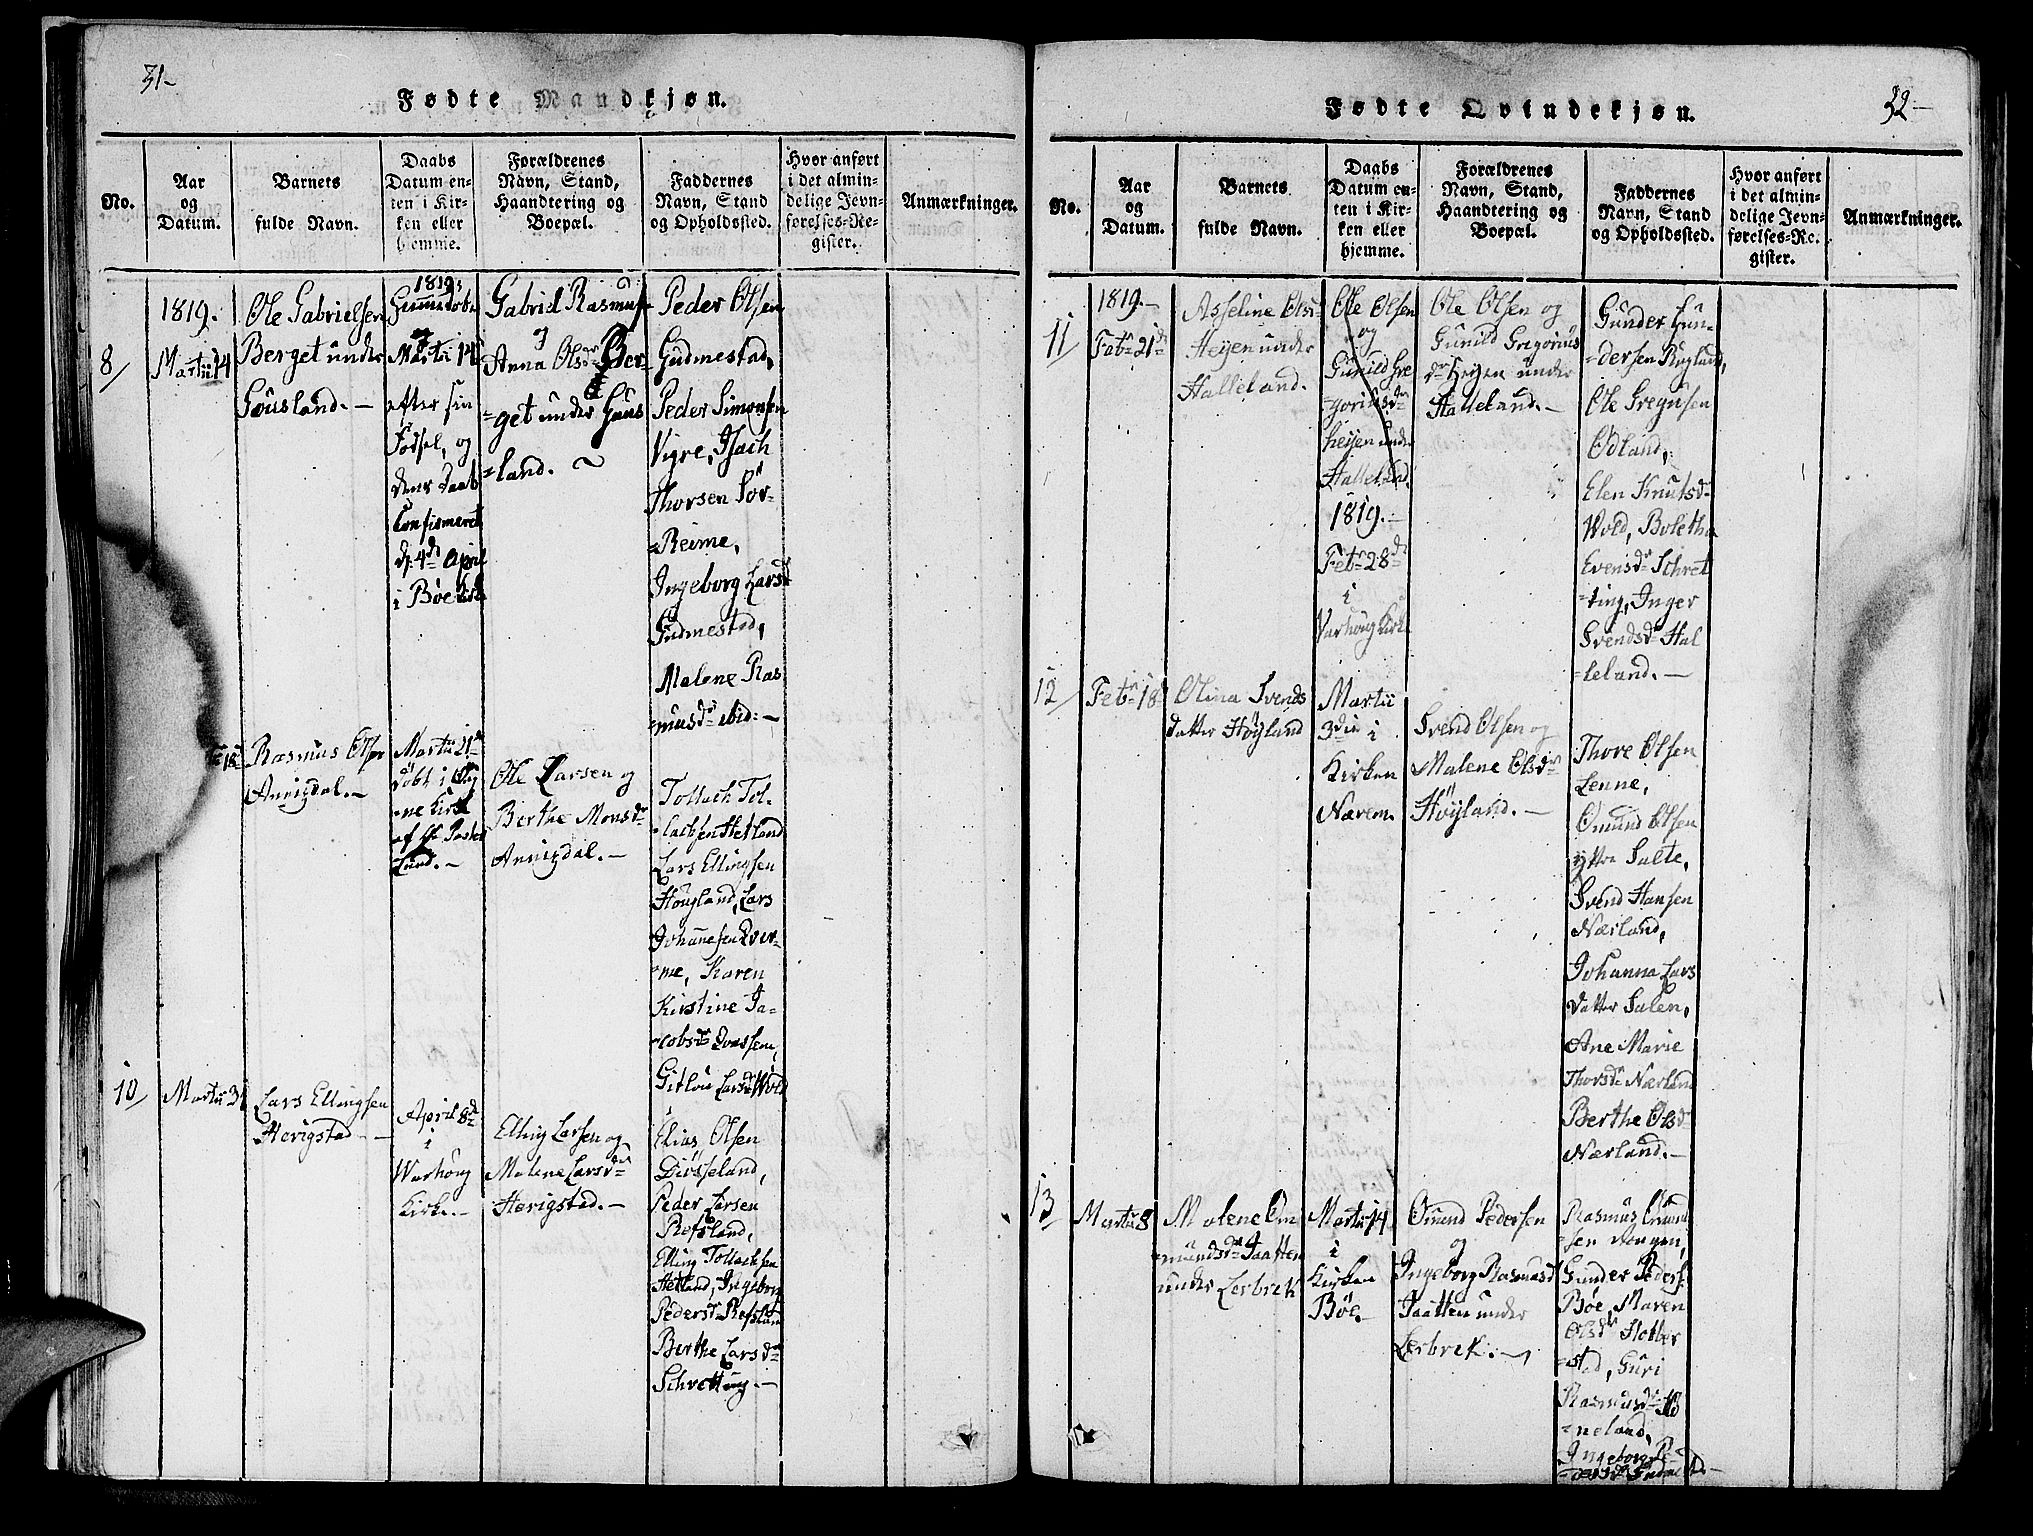 31-
Fødte Mandkjøn.
No.
Aar
og
Datum.
Barnets
fulde Navn.
Daabs
Datum en-
ten i Kir-
ken eller
hjemme.
Forældrenes
Navn, Stand,
Haandtering og
Boepæl.
Faddernes
Navn, Stand
og Opholdssted.
Hvor anført
i det almin-
delige Jevn-
førelses-Re-
gister.
Anmærkninger.
8/
1819.
Martii 14
Ole Gabrielsen
Berget under
Gousland. -
1819:
Martii 14
efter sin
Fødsel, og
dens Daab
Confirmeret
d. 4de April
i Bøe
Gabriel Rasmus-
og
Anna Olsdr Ber-
=get under Gaus
=land.
Peder Olsen
Gudmestad,
Peder Simonsen
Vigre, Isach
Thorsen Sør-
=Reime,
Ingeborg Larsd
Gudmestad,
Malene Ras
=musdr ibid: -
18
Rasmus Olsen
Annigdal. -
Martii 21de
døbt i Og
=ne Kirke
Lund. -
Ole Larsen og
Berthe Monsdr
Annigdal. -
Tollach Tol-
=lachsen Hetland
Lars Ellingsen
Høugland, Lars
Johannesen Qver-
=me, Karen
Kirstine Ja-
=cobsdr
Larsdr Wold
10/
Martii 31
Lars Ellingsen
Herigstad -
April 8de
i
Warhoug
Kirke. -
Elling Larsen og
Malene Larsdr
Herigstad. -
Elias Olsen
Peder Larsen
Refsland,
Elling Tollachsen
Hetland, Ingeborg
Pedersdr Refsland
Berthe Larsdr
Schretting -
32-
Fødte Qvindekjøn.
No.
Aar
og
Datum.
Barnets
fulde Navn.
Daabs
Datum en-
ten i Kir-
ken eller
hjemme.
Forældrenes
Navn, Stand,
Haandtering og
Boepæl.
Faddernes
Navn, Stand
og Opholdssted.
Hvor anført
i det almin-
delige Jevn-
førelses-Re-
gister.
Anmærkninger.
11/
1819. -
Febr 21de
Asseline Ols-
Heijen under
Halleland.
Ole Olsen
og
Gunild Gre
=goriusdr
heijen under
Halleland.
1819. -
Febr 28de
i
Varhoug Kirke
Ole Olsen og
Gunild Gregorius
dr Heijen under
Halleland. -
Gunder Gun-
=dersen Ruglund,
Ole Gregusen
Ødland,
Elen Knutsdr
Wold, Boletha
Evensdr Schret
=ting, Inger
Svendsdr Hal
=leland. -
12/
Febr 18
Olina Svends
datter Høyland
Martii
i
Kirken
Nærem.
Svend Olsen og
Malene Olsdr
Høyland. -
Thore Olsen
Lenne,
Omund Olsen
Salte,
Svend Hansen
Nærland,
Johanna Lars
datter Salen,
Ane Marie
Thorsdr Nærland
Berthe Olsd
Nærland. -
13/
Martii 8
Malene Om
=mundsdr Taatten
under Lerbrek
Martii 14
i
Kirken
Bøe. -
Omund Pedersen
og
Ingeborg Rasmusd
Taatten under
Lerbrek. -
Rasmus Omund
=sen
Gunder Peders.
Bøe, Maren
Olsdr Hobber
=stad, Guri
Rasmusdr
=neland,
Ingeborg Pe-